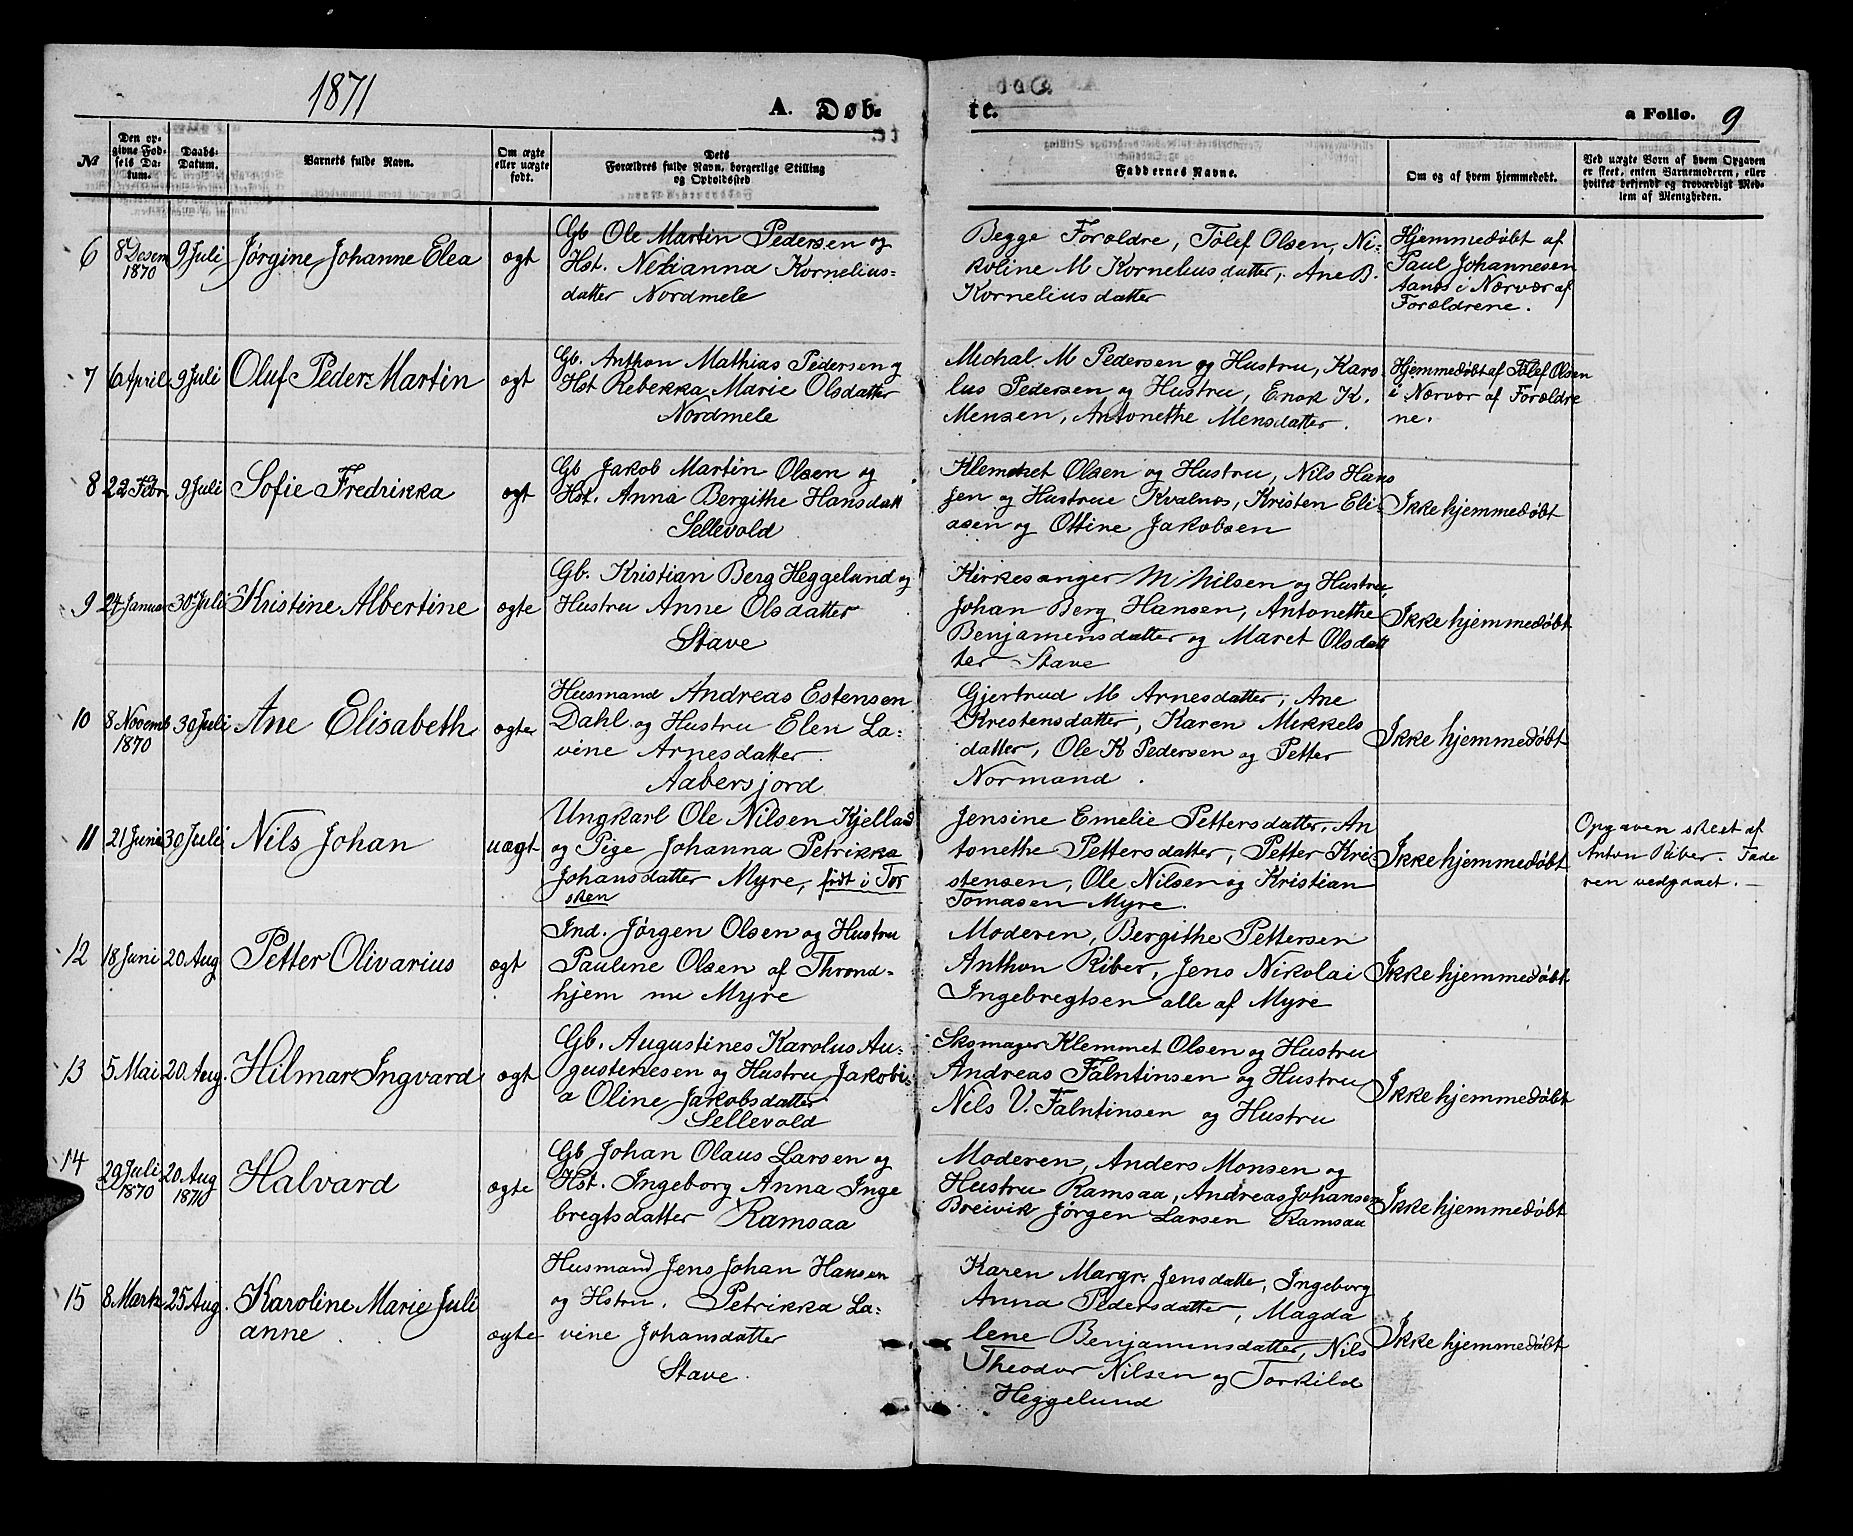 1871
A. Døb-
te.
a Folio. 9
№
Den op-
givne Fød-
sels Da-
tum.
Daabs-
Datum.
Barnets fulde Navn.
Om ægte
eller uægte
født.
Dets
Forældres fulde Navn, borgerlige Stilling
og Opholdssted
Faddernes Navne.
Om og af hvem hjemmedøbt.
Ved uægte Børn af hvem Opgaven
er skeet, enten Barnemoderen, eller
hvilket bekjendt og troværdigt Med-
lem af Menigheden.
6
8 Desem
1870
9 Juli
Jørgine Johanne Elea
ægt
Gb Ole Martin Pedersen og
Hst. Nekianna Kornelius-
datter Nordmele
Begge Forældre, Tølef Olsen, Ni-
koline M Korneliusdatter, Ane B.
Korneliusdatter
Hjemmedøbt af
Paul Johannesen
Aanes i Nærvær af
Forældrene.
7
6 April
9 Juli
Oluf Peder Martin
ægt
Gb. Anthon Mathias Pedersen og
Hst Rebekka Marie Olsdatter
Nordmele
Michal M Pedersen og Hustru, Karo
lus Pedersen og Hustru, Enok K.
Mensen, Antonethe Mensdatter.
Hjemmedøbt af Tølef Olsen
i Nærvær af Forældre
ne.
8
22 Febr
9 Juli
Sofie Fredrikka
ægt
Gb Jakob Martin Olsen og
Hst. Anna Bergithe Hansdatt
Sellevold
Klemmet Olsen og Hustru, Nils Hans
sen og Hustrue Kvalnes, Kristen Eli-
asen og Ottine Jakobsen
Ikke hjemmedøbt
9
24 Januar
30 Juli
Kristine Albertine
ægte
Gb. Kristian Berg Heggelund og
Hustru Anne Olsdatter
Stave
Kirkesanger M Nilsen og Hustru,
Johan Berg Hansen, Antonethe
Benjamensdatter og Maret Olsdatt
ter Stave
Ikke hjemmedøbt
10
8 Novemb
1870
30 Juli
Ane Elisabeth
ægte
Husmand Andreas Estensen
Dahl og Hustru Elen La-
vine Arnesdatter.
Aabersjord
Gjertrud M Arnesdatter, Ane
Krestensdatter, Karen Mikkels
datter, Ole K Pedersen og Petter
Normand.
Ikke hjemmedøbt
11
21 Juni
30 Juli
Nils Johan
uægt
Ungkarl Ole Nilsen Kjellad
og Pige Johanna Petrikka
Johansdatter Myre, født i Tor
sken
Jensine Emelie Pettersdatter, An
tonethe Pettersdatter, Petter Kri-
stensen, Ole Nilsen og Kristian
Tomasen Myre.
Ikke hjemmedøbt
Opgaven skeet af
Anton Riber. Fade
ren vedgaaet.—
12
18 Juni
20 Aug
Petter Olivarius
ægt
Ind. Jørgen Olsen og Hustru
Pauline Olsen af Thrond-
hjem nu Myre
Moderen, Bergithe Pettersen
Anthon Riber, Jens Nikolai
Ingebregtsen alle af Myre
Ikke hjemmedøbt
13
5 Mai
20 Aug.
Hilmar Ingvard
ægt
Gb. Augustines Karolus Au-
gustenesen og Hustru Jakobi-
a Oline Jakobsdatter
Sellevold
Skomager Klemmet Olsen og Hustru
Andreas Falntinsen og Hustru
Nels V. Falntinsen og Hustru
Ikke hjemmedøbt
14
29 Juli
1870
20 Aug
1871
Halvard
ægte
Gb Johan Olaus Larsen og
Hst. Ingeborg Anna Inge
bregtsdatter Ramsaa
Moderen, Anders Monsen og
Hustru Ramsaa, Andreas Johansen
Breivik Jørgen Larsen Ramsaa
Ikke hjemmedøbt
15
8 Marts
25 Aug.
Karoline Marie Juli
anne
ægte
Husmand Jens Johan Hansen
og Hstru. Petrikka La-
vine Johansdatter
Stave
Karen Margr. Jensdatter, Ingeborg
Anna Pedersdatter, Magda
lene Benjamensdatter, Nils
Theodor Nilsen og Torkild
Heggelund
Ikke hjemmedøbt